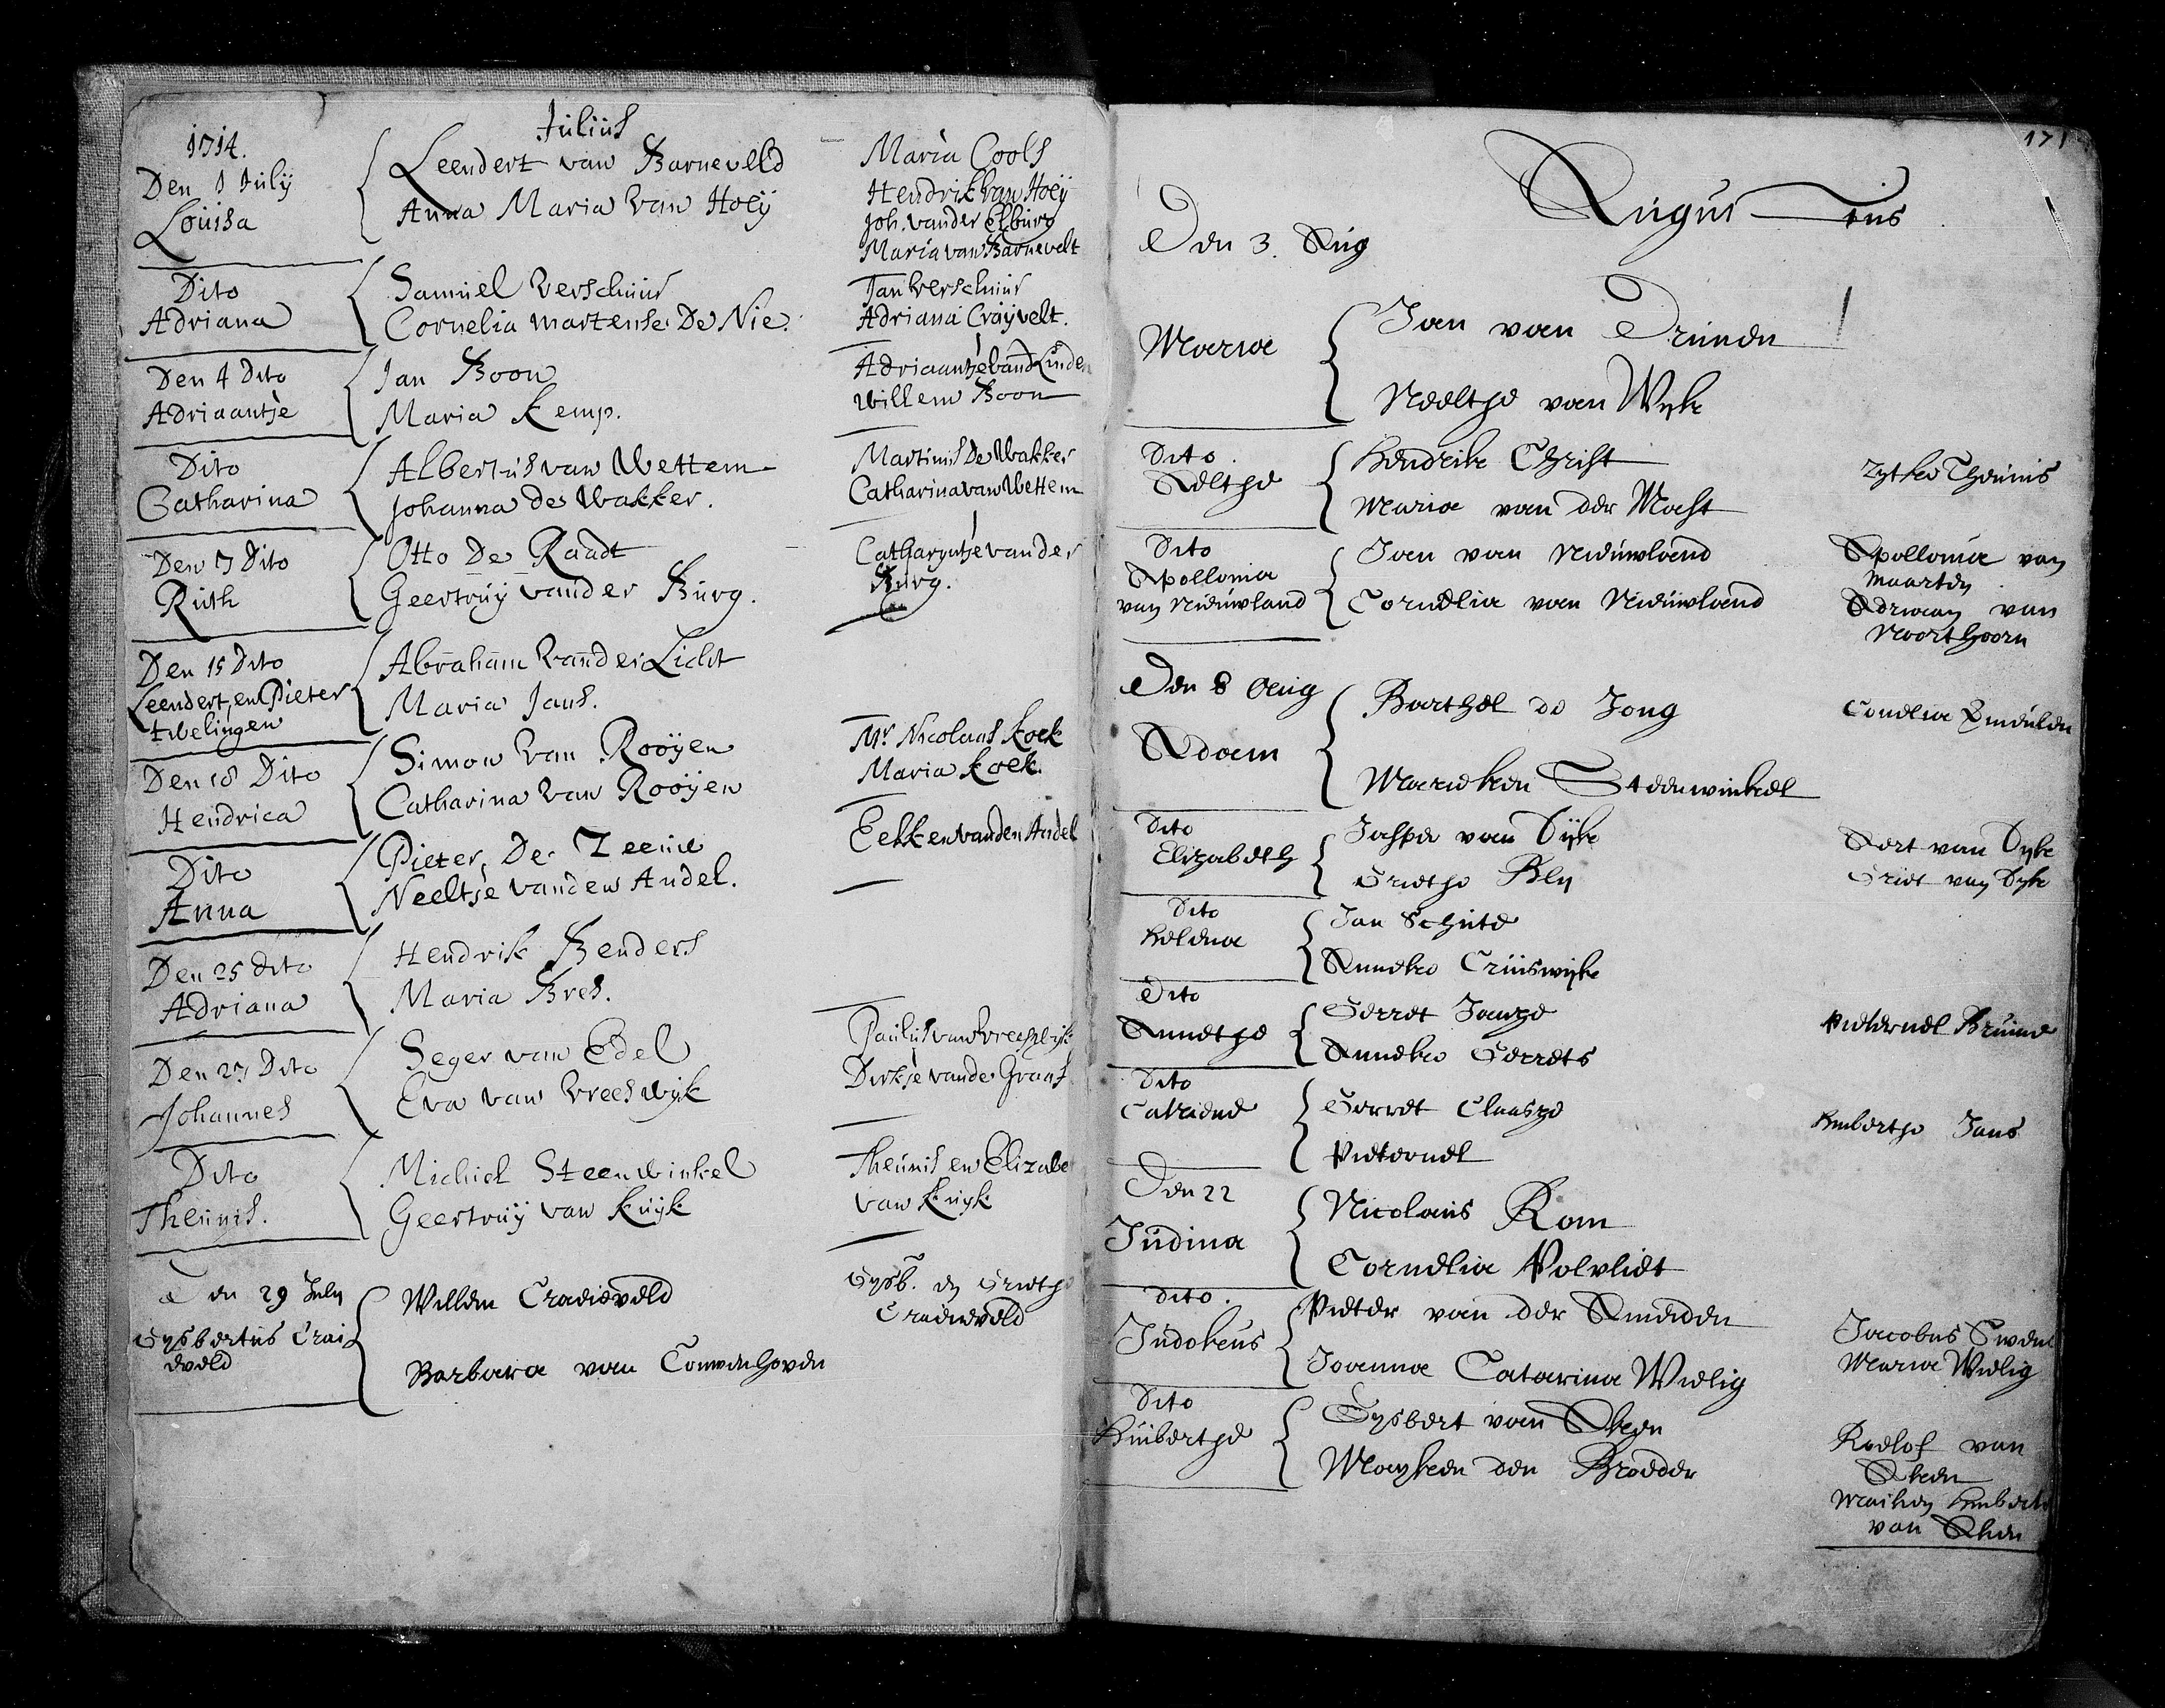 1714.
Julius
Den 1 Julij
Louisa
Leendert van Barneveld
Anna Maria van Hoeij
Maria Cools
Hendrik van Hoeij
Joh. vander Elburg
Maria van Barnevelt
Dito
Adriana
Samuel Verschuur
Cornelia martense De Nie.
Jan Verschuur
Adriana Craijvelt.
Den 4 Dito
Adriaantje
Jan Boon
Maria Kemp.
Adriaantje vand Linden
Willem Boon
Dito
Catharina
Albertus van Wettem
Johanna de Wakker.
Martinus De Wakker
Catharina van Wettem
Den 7 Dito
Ruth
Otto De Raadt
Geertruij vander Burg.
Catharyntje van der
Burg.
Den 15 Dito
Leendert, en Pieter
twelingen
Abraham vander Licht
Maria Jans.
Den 18 Dito
Hendrica
Simon van Rooijen
Catharina van Rooijen
Mr. Nicolaas Koek
Maria Koek.
Dito
Anna
Pieter De Zeeuw
Neeltje vanden Andel.
Eekken vanden Andel
Den 25 dito
Adriana
Hendrik Benders
Maria Bres.
Den 27 Dito
Johannes
Seger van Edel
Eva van Vreeswyk
Paulus van Vreeswijk
Dirkje vande Graaf
Dito
Theunis.
Michiel Steenwinkel
Geertruij van Kuijk
Theunis en Elizabe
van Kuyk
Den 29 July
Gysbertus Crai
eveld
Willem Craeieveld
Barbara van Couwenhoven
Gysb. en Grietje
Craeieveld
171
Augustus
Den 3. Aug
Maria
Jan van Drunen
Neeltje van Wyk
Dito.
Aeltje
Hendrik Christ
Maria van der Mast
Zytke Theunis
Dito
Apollonia
van Nieuwland
Jan van Nieuwland
Cornelia van Nieuwland
Apollonia van
Maarten
Adriaan van
Noorthoorn
Den 8 Aug
Adam
Barthel de Jong
Marieken Steenwinkel
Dito
Elizabeth
Jasper van Dijk
Grietje Bly
Aert van Dyk
Griet van Dyk
Dito
Helena
Jan Schute
Anneke Cruiswijk
Dito
Annetje
Gerret Janze
Anneke Gerrets
Pieternel Bruine
Dito
Catriene
Gerret Claasze
Pieternel
Huibertje Jans
Den 22
Judina
Nicolaus Kom
Cornelia Polvliet
Dito.
Judokus
Pieter van der Smeeden
Joanna Catarina Wielig
Jacobus
Maria Wielig
Dito
Huibertje
Gysbert van Aken
Mayken den Broeder
Roelof van
Aken
Maiken
van Aken